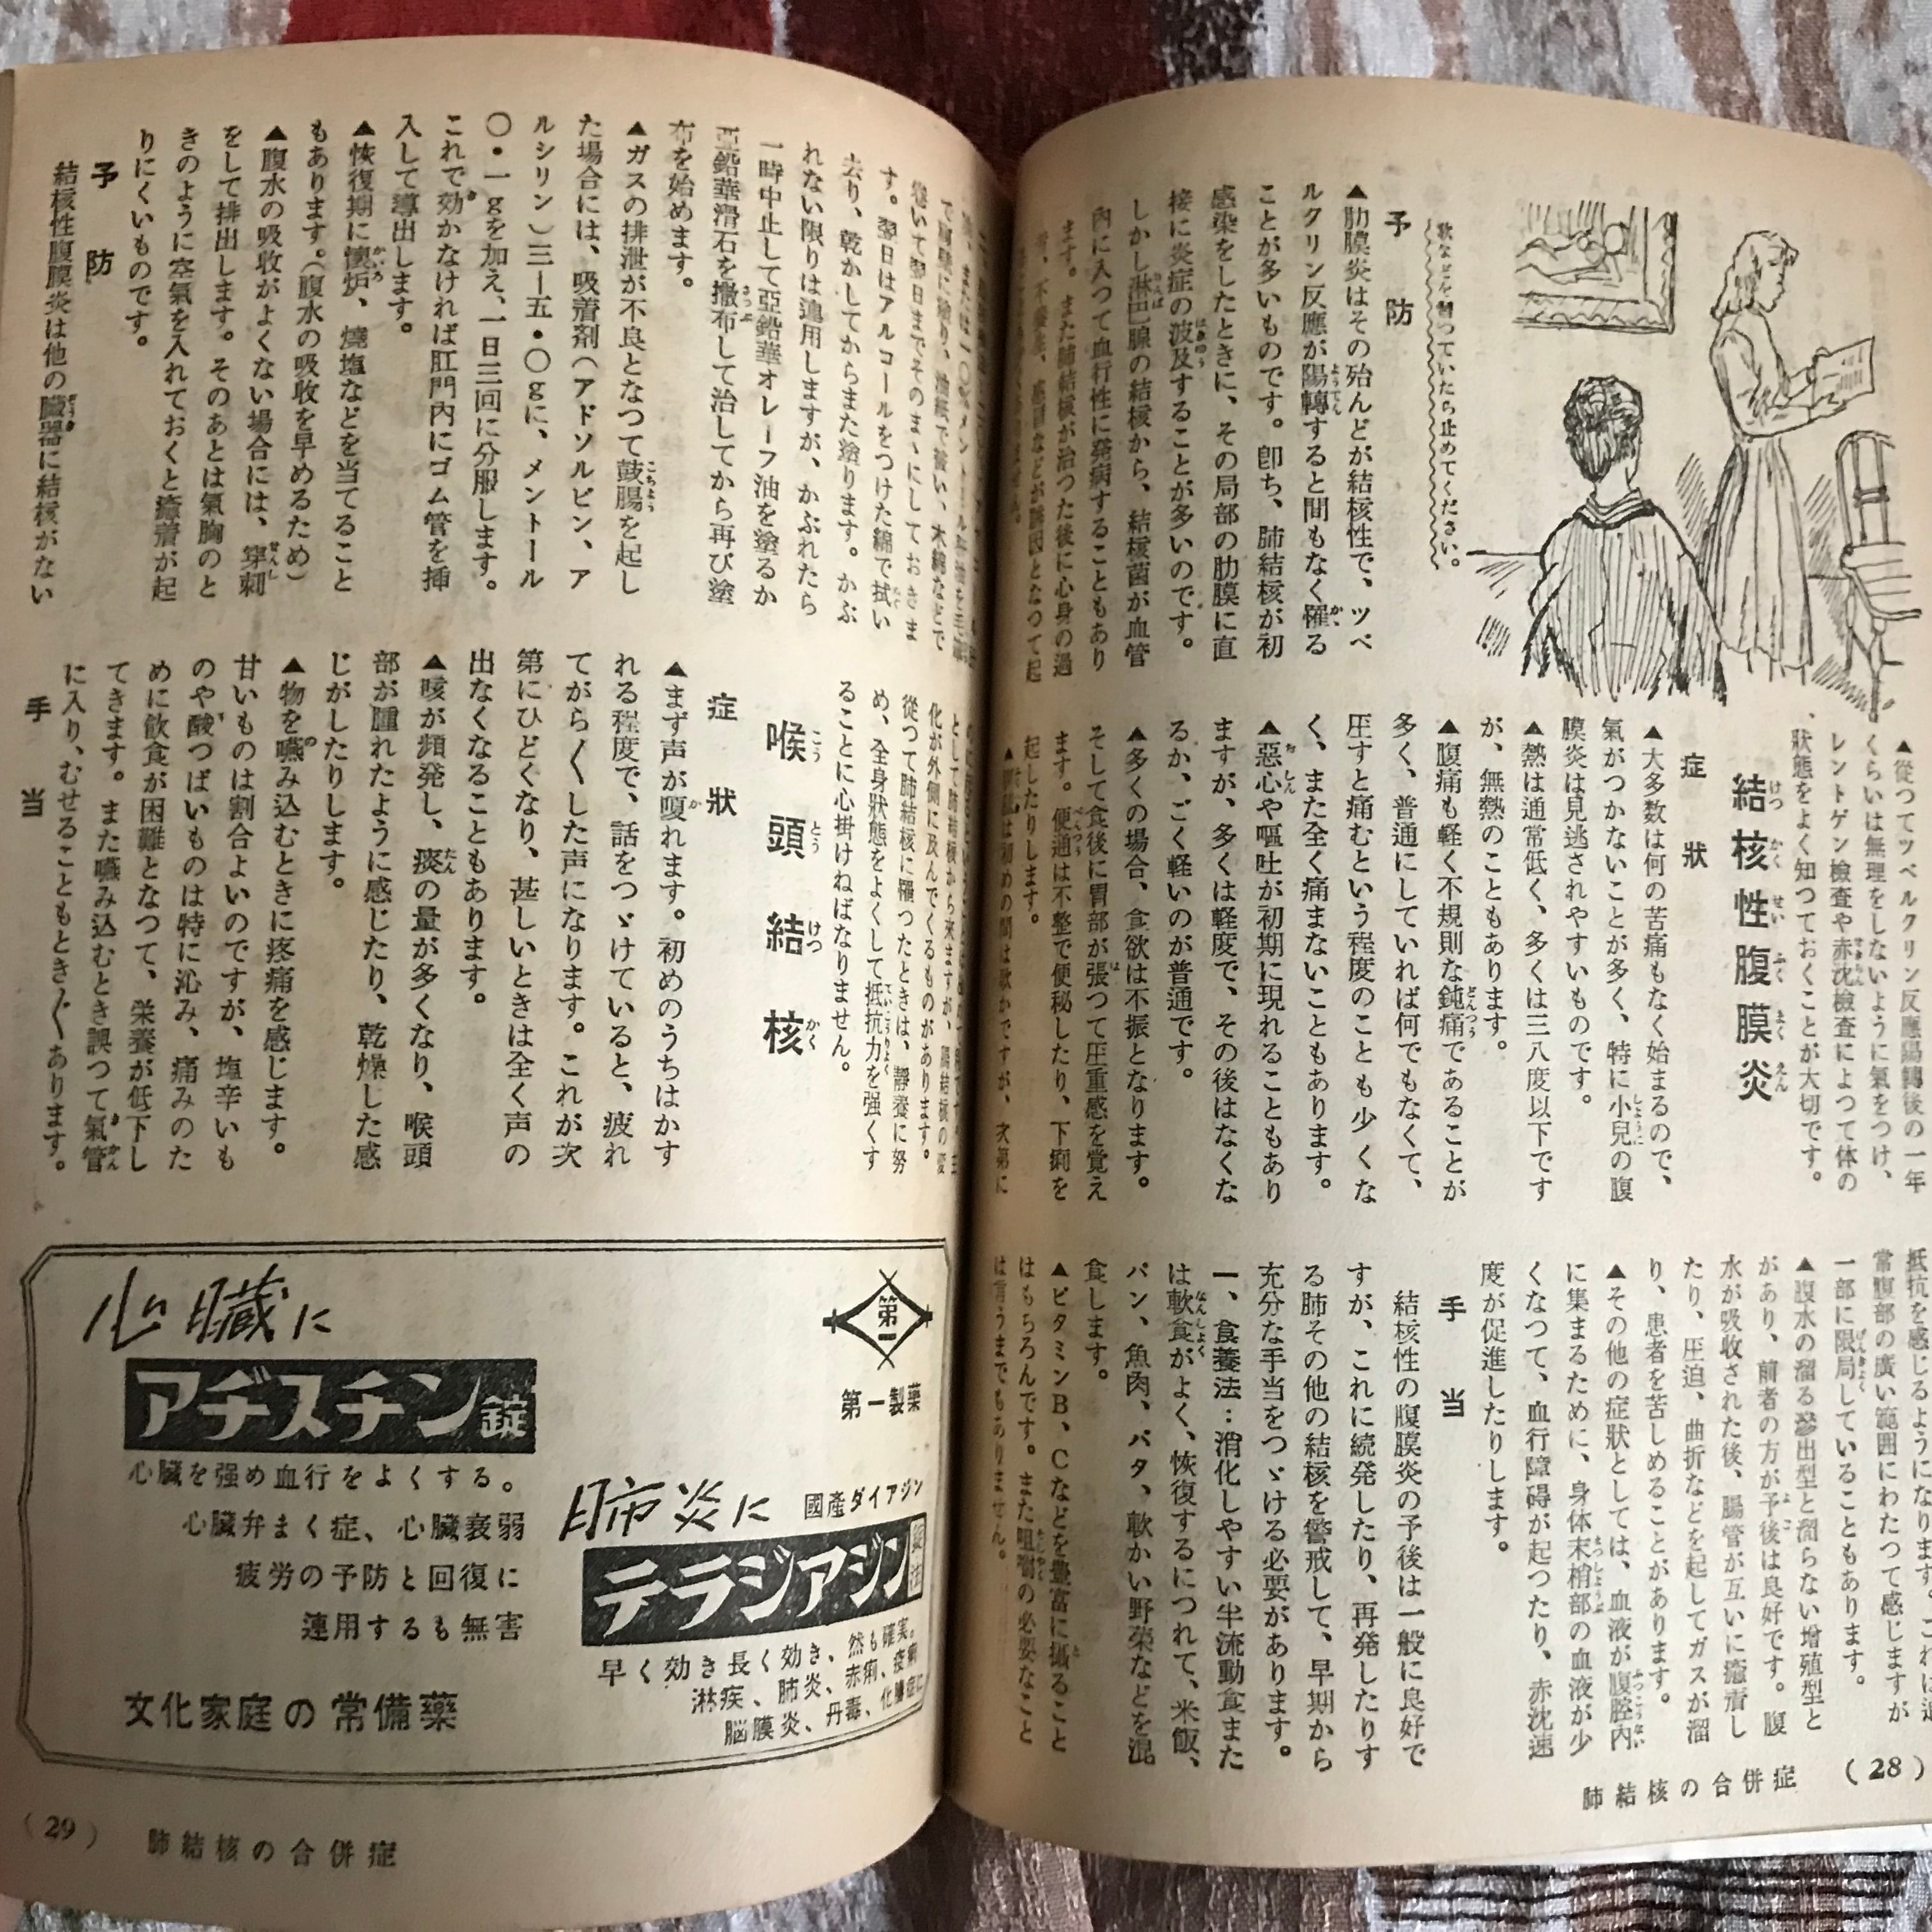 歌などを習つていたら止めてください。
予防
▲肋膜炎はその殆んどが結核性で、ツベ
ルクリン反應が陽轉すると間もなく罹る
ことが多いものです。卽ち、肺結核が初
感染をしたときに、その局部の肋膜に直
接に炎症の波及することが多いのです。
しかし淋巴腺の結核から、結核菌が血管
內に入つて血行性に発病することもあり
ます。また肺結核が治つた後に心身の過
不養生、感冒などが誘因となつて起
▲從つてツベルクリン反應陽轉後の一年
くらいは無理をしないように氣をつけ、
レントゲン檢査や赤沈檢査によつて体の
狀態をよく知つておくことが大切です。
結核性腹膜炎
症狀
▲大多数は何の苦痛もなく始まるので、
氣がつかないことが多く、特に小兒の腹
膜炎は見逃されやすいものです。
▲熱は通常低く、多くは三八度以下です
が、無熱のこともあります。
▲腹痛も軽く不規則な鈍痛であることが
多く、普通にしていれば何でもなくて、
圧すと痛むという程度のことも少くな
く、また全く痛まないこともあります。
▲惡心や嘔吐が初期に現れることもあり
ますが、多くは軽度で、その後はなくな
るか、ごく軽いのが普通です。
▲多くの場合、食欲は不振となります。
そして食後に胃部が張つて圧重感を覚え
ます。便通は不整で便秘したり、下痢を
起したりします。
は初めの間は軟かですが、次第に
抵抗を感じるようになります。これは通
常腹部の廣い範囲にわたつて感じますが
一部に限局していることもあります。
▲腹水の溜る滲出型と溜らない增殖型と
があり、前者の方が予後は良好です。腹
水が吸收された後、腸管が互いに癒着し
たり、圧迫、曲折などを起してガスが溜
り、患者を苦しめることがあります。
▲その他の症狀としては、血液が腹腔內
に集まるために、身体末梢部の血液が少
くなつて、血行障碍が起つたり、赤沈速
度が促進したりします。
手当
結核性の腹膜炎の予後は一般に良好で
すが、これに続発したり、再発したりす
る肺その他の結核を警戒して、早期から
充分な手当をつゞける必要があります。
一、食養法：消化しやすい半流動食また
は軟食がよく、恢復するにつれて、米飯、
パン、魚肉、バタ、軟かい野菜などを混
食します。
▲ビタミンB、Cなどを豊富に攝ること
はもちろんです。また咀嚼の必要なこと
は言うまでもありません。
肺結核の合併症　（28）
て翌日までそのまゝにしておきま
す。翌日はアルコールをつけた綿で拭い
去り、乾かしてからまた塗ります。かぶ
れない限りは連用しますが、かぶれたら
一時中止して亞鉛華オレーフ油を塗るか
亞鉛華滑石を撒布して治してから再び塗
布を始めます。
▲ガスの排泄が不良となつて鼓腸を起し
た場合には、吸着剤（アドソルビン、ア
ルシリン）三―五・〇gに、メントール
〇・一gを加え、一日三回に分服します。
これで効かなければ肛門內にゴム管を挿
入して導出します。
▲恢復期に懷炉、燒塩などを当てること
もあります。（腹水の吸收を早めるため）
▲腹水の吸收がよくない場合には、穿刺
をして排出します。そのあとは氣胸のと
きのように空氣を入れておくと癒着が起
りにくいものです。
予防
結核性腹膜炎は他の臟器に結核がない
として肺結核から来ますが、腸結核の変
化が外側に及んでくるものがあります。
從つて肺結核に罹つたときは、靜養に努
め、全身狀態をよくして抵抗力を强くす
ることに心掛けねばなりません。
喉頭結核
症狀
▲まず声が嗄れます。初めのうちはかす
れる程度で、話をつゞけていると、疲れ
てがら〱した声になります。これが次
第にひどくなり、甚しいときは全く声の
出なくなることもあります。
▲咳が頻発し、痰の量が多くなり、喉頭
部が腫れたように感じたり、乾燥した感
じがしたりします。
▲物を嚥み込むときに疼痛を感じます。
甘いものは割合よいのですが、塩辛いも
のや酸つぱいものは特に沁み、痛みのた
めに飲食が困難となつて、栄養が低下し
てきます。また嚥み込むとき誤つて氣管
に入り、むせることもとき〲あります。
手当
第一
第一製薬
肺炎に
國產ダイアジン
テラジアジン
早く効き長く効き、然も確実。
淋疾、肺炎、赤痢、疫痢
脳膜炎、丹毒、化膿症に
心臓に
アヂスチン錠
心臓を強め血行をよくする。
心臓弁まく症、心臓衰弱
疲労の予防と回復に
連用するも無害
文化家庭の常備薬
（29）　肺結核の合併症